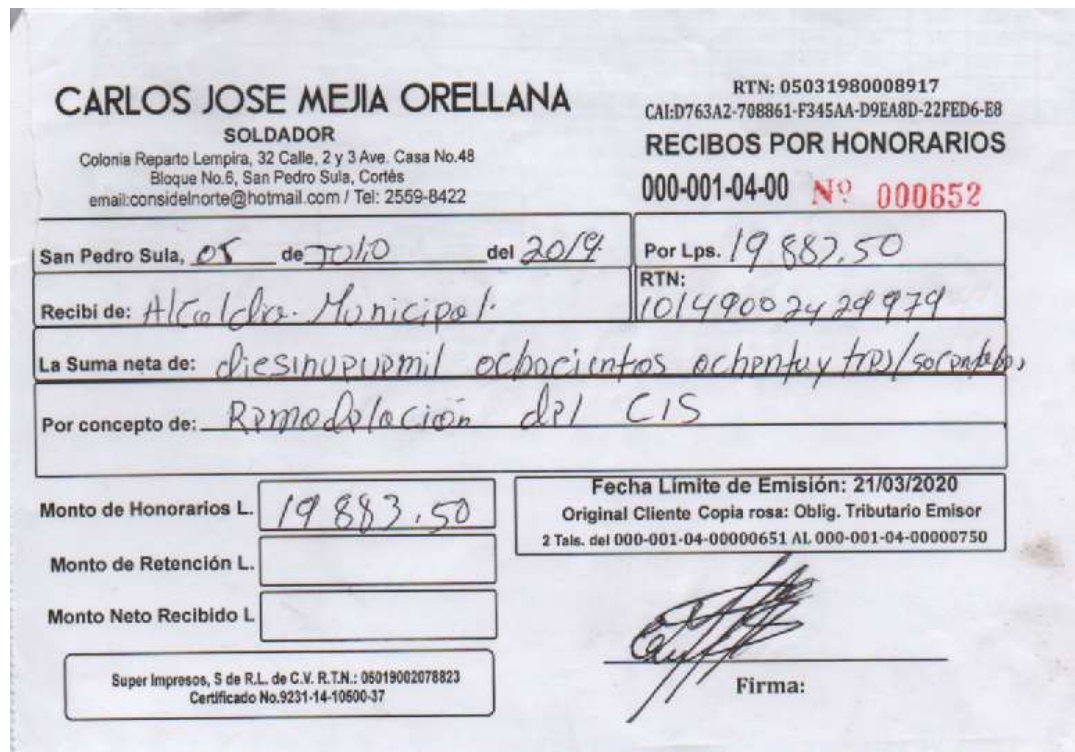 CARLOS JOSE MEJIA ORELLANA
SOLDADOR
Colonia Reparto Lempira, 32 Calle, 2 y 3 Ave. Casa No.48
Bloque No.6, San Pedro Sula, Cortés
email:considelnorte@hotmail.com / Tel: 2559-8422
RTN: 05031980008917
CAI:D763A2-708861-F345AA-D9EA8D-22FED6-E8
RECIBOS POR HONORARIOS
000-001-04-00 Nº 000652
San Pedro Sula, 05 de Julio del 2019
Por Lps. 19 883.50
Recibí de: Alcaldia Municipal
RTN:
La Suma neta de: diesinueuemil ochocientos ochentay tres/
Por concepto de: Remodelación del CIS
Monto de Honorarios L. 19 883.50
Monto de Retención L.
Monto Neto Recibido L
Fecha Límite de Emisión: 21/03/2020
Original Cliente Copia rosa: Oblig. Tributario Emisor
2 Tals. del 000-001-04-00000651 AL 000-001-04-00000750
Super Impresos, S de R.L. de C.V. R.T.N.: 05019002078823
Certificado No.9231-14-10500-37
Firma: